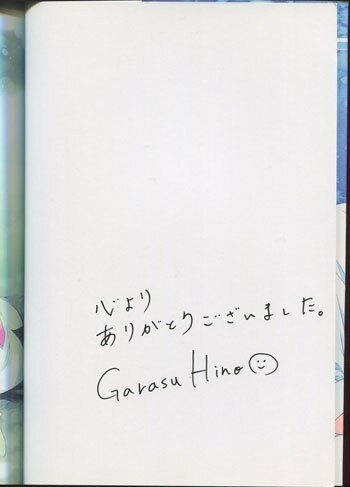 心より
ありがとうございました。
Garasu Hino